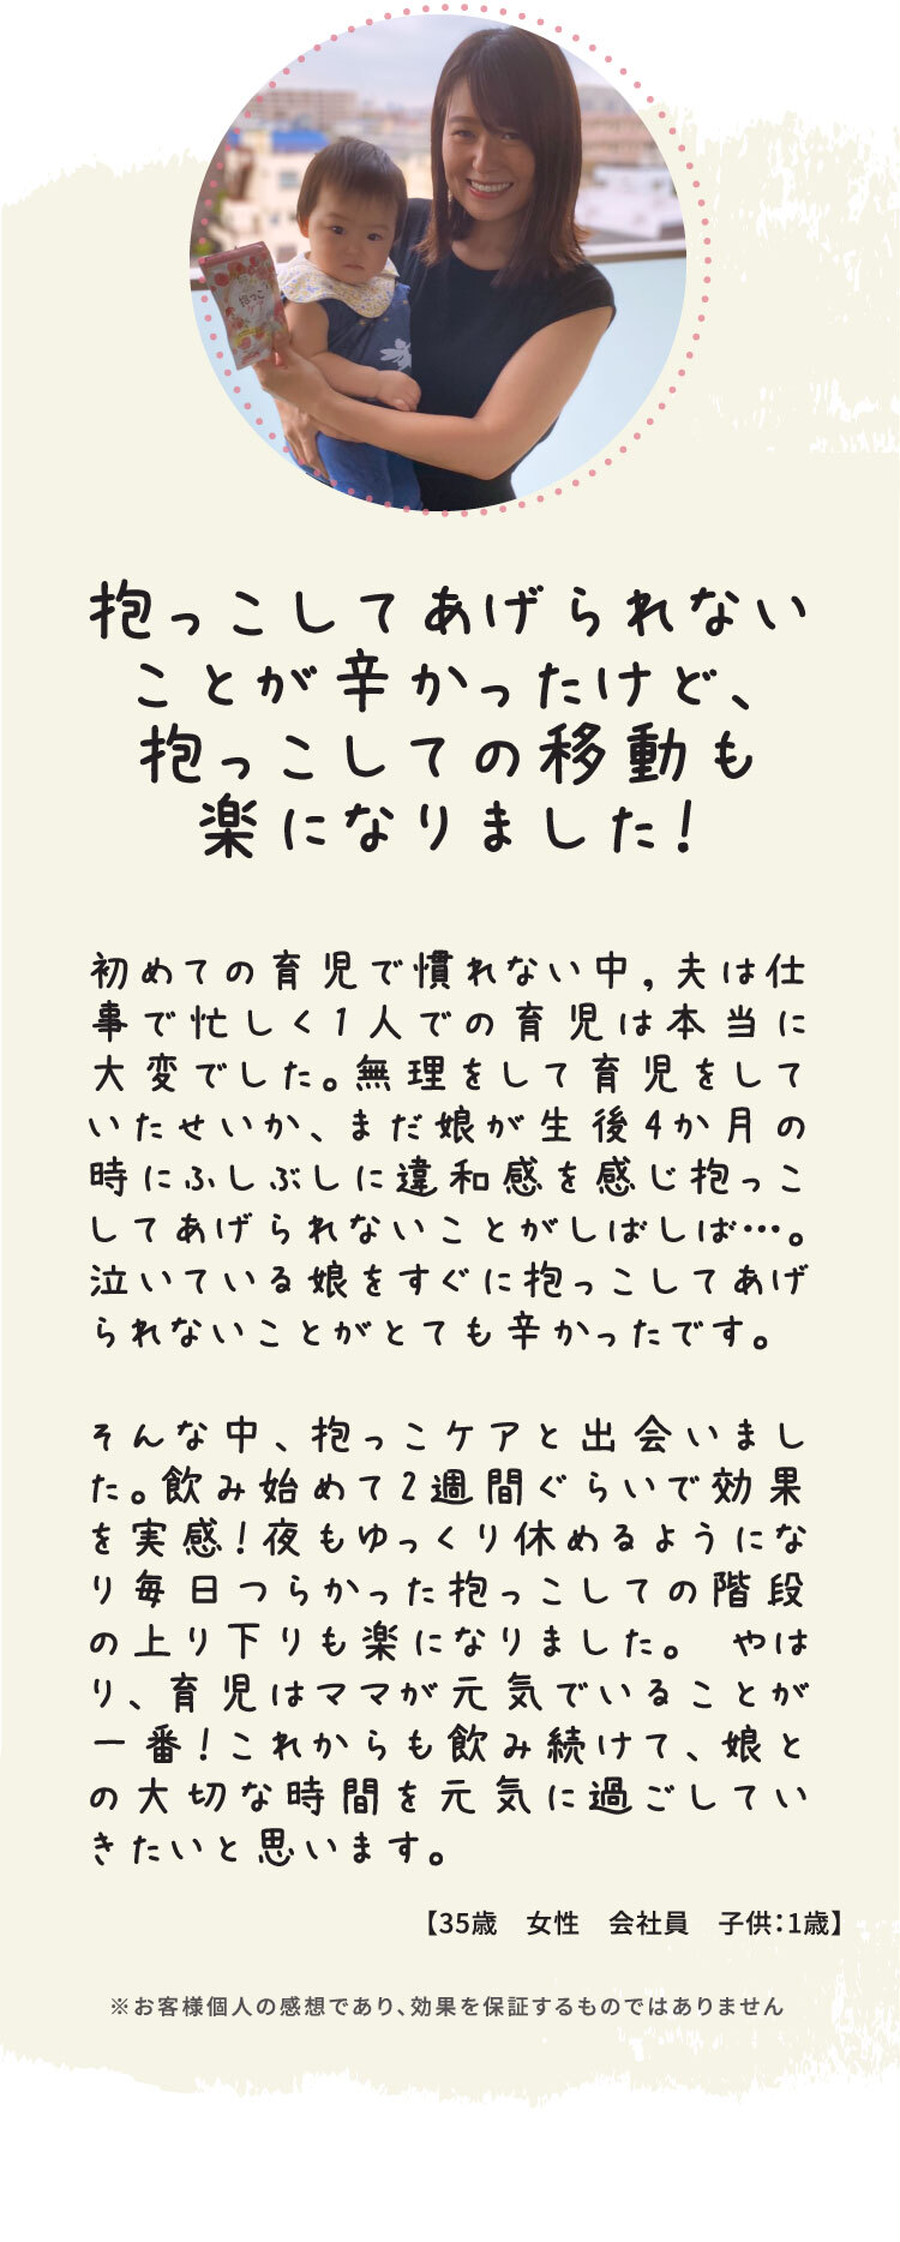 抱っこ
抱っこしてあげられない
ことが辛かったけど、
抱っこしての移動も
楽になりました!
初めての育児で慣れない中,夫は仕
事で忙しく1人での育児は本当に
大変でした。無理をして育児をして
いたせいか、まだ娘が生後4か月の
時にふしぶしに違和感を感じ抱っこ
してあげられないことがしばしば…。
泣いている娘をすぐに抱っこしてあげ
られないことがとても辛かったです。
そんな中、抱っこケアと出会いまし
た。飲み始めて2週間ぐらいで効果
を実感!夜もゆっくり休めるようにな
り毎日つらかった抱っこしての階段
の上り下りも楽になりました。 やは
り、育児はママが元気でいることが
一番!これからも飲み続けて、娘と
の大切な時間を元気に過ごしてい
きたいと思います。
【35歳 女性 会社員 子供:1歳】
※お客様個人の感想であり、効果を保証するものではありません